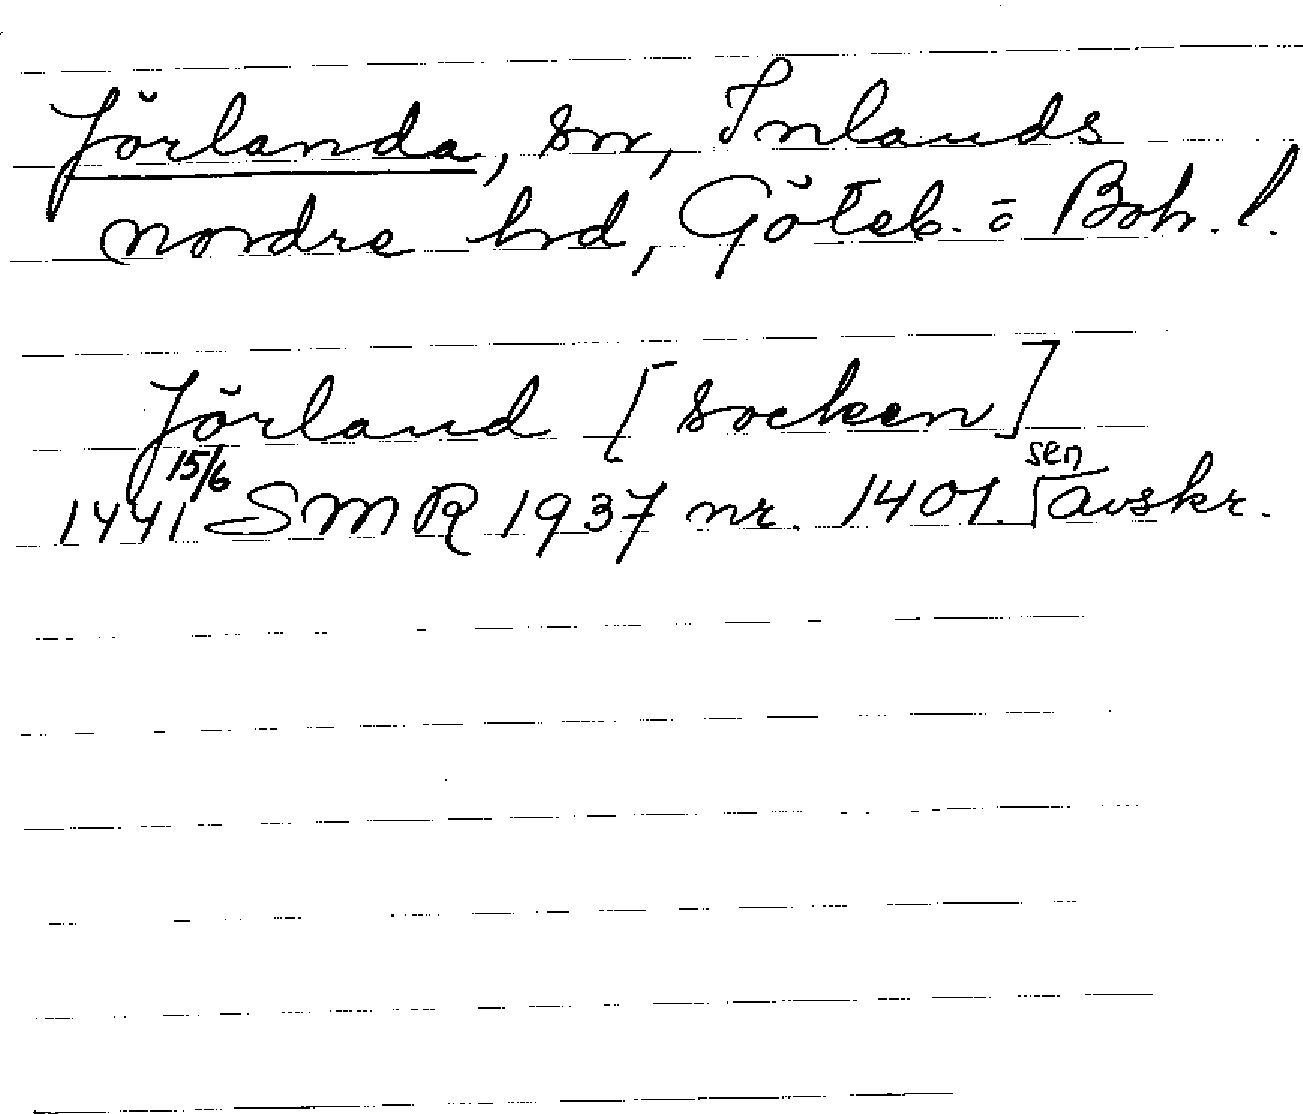 Jörlanda, sn, Inlands
nordre hd, Göteb. o Boh. l.
Jörland [socken]
1441 15/6 SMR 1937 nr. 1401. sen avskr.